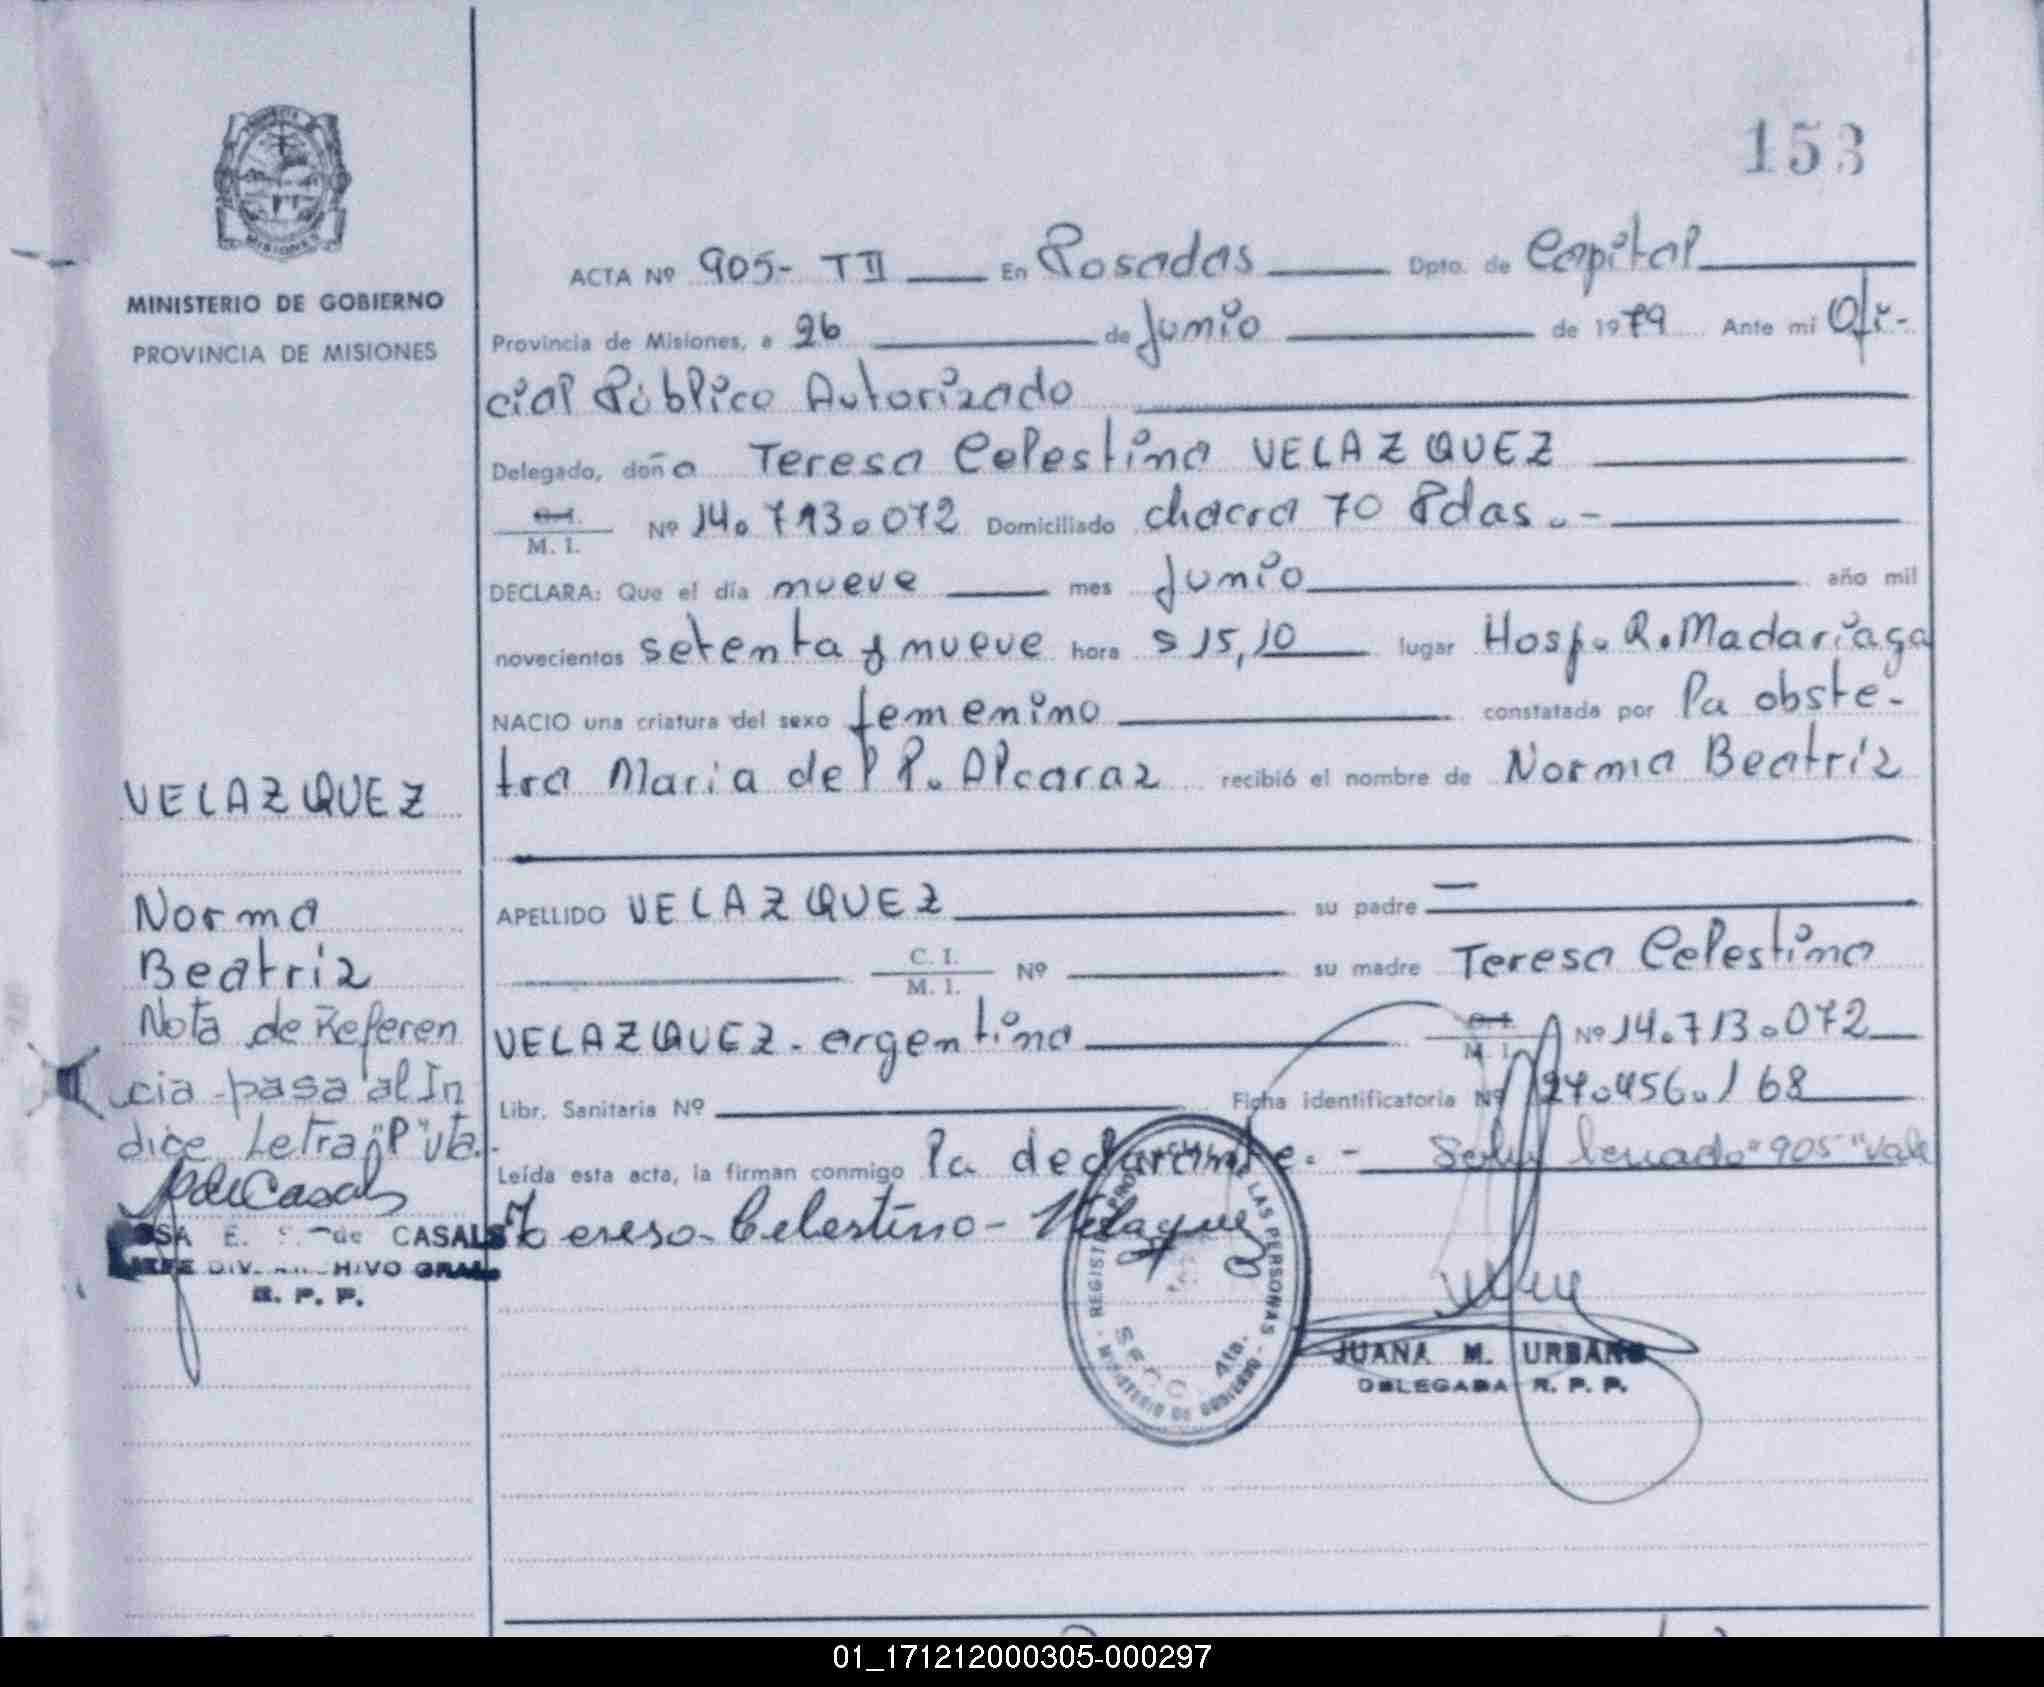 153
MINISTERIO DE GOBIERNO
PROVINCIA DE MISIONES
ACTA Nº 905- TII En Posadas Dpto. de Capital
Provincia de Misiones, a 26 de Junio de 1979 Ante mi Ofi-
cial Público Autorizado
Delegado, doña Teresa Celestina VELAZQUEZ
C.I. M. I. Nº 14.713.072 Domiciliado chacra 70 Pdas.-
DECLARA: Que el día nueve mes Junio año mil
novecientos setenta y nueve hora s 15,10 lugar Hosp. R. Madariaga
NACIO una criatura del sexo femenino constatada por la obste-
tra Maria del P. Alcaraz recibió el nombre de Norma Beatriz
APELLIDO VELAZQUEZ su padre —
C. I. M. I. Nº su madre Teresa Celestina
VELAZQUEZ - argentina C.I. M. I. Nº 14.713.072
Libr. Sanitaria Nº Ficha identificatoria Nº 27.456.168
Leída esta acta, la firman conmigo la declarante. - "905" Vale
Tereso Celestino - Velazquez
VELAZQUEZ
Norma
Beatriz
Nota de Referen
cia - pasa al In
dice Letra "P" vta.-
de CASALS
JEFE DIV. ARCHIVO GRAL.
R. P. P.
REGISTRO PROVINCIAL DE LAS PERSONAS
MINISTERIO DE GOBIERNO
JUANA M. URBANO
DELEGADA R. P. P.
01_171212000305-000297